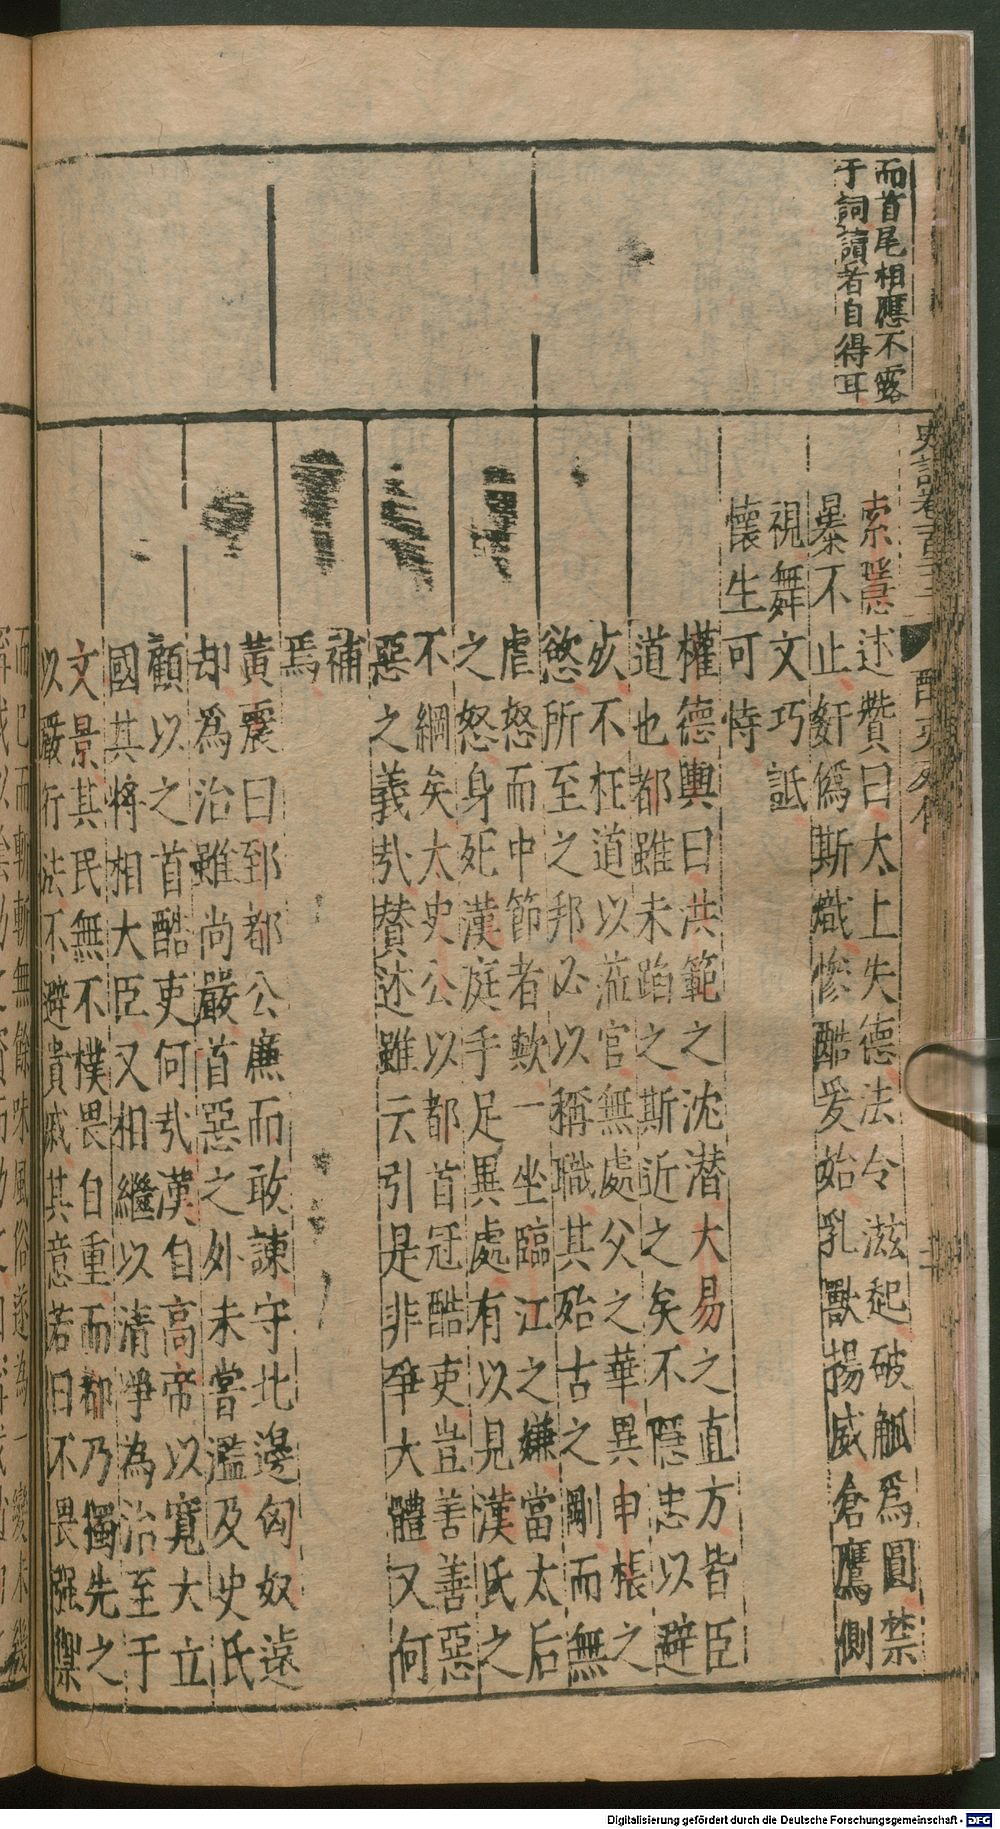 而首尾相應不露
于詞讀者自得耳
史記卷一百二十二
酷吏列傳
索隱述贊曰太上失德法令滋起破觚爲圓禁
暴不止姧僞斯熾慘酷爰始乳獸揚威倉鷹側
視舞文巧詆
懷生可恃
權德輿曰洪範之沈潜大易之直方皆臣
道也都雖未蹈之斯近之矣不隱忠以避
死不枉道以蒞官無處父之華異申棖之
慾所至之邦必以稱職其殆古之剛而無
虐怒而中節者歟一坐臨江之嫌當太后
之怒身死漢庭手足異處有以見漢氏之
不綱矣太史公以都首冠酷吏豈善善惡
惡之義㢤賛述雖云引是非爭大體又何
補
焉
黃震曰郅都公廉而敢諫守北邊匈奴遠
却爲治雖尚嚴首惡之外未嘗濫及史氏
顧以之首酷吏何㢤漢自高帝以寬大立
國其將相大臣又相繼以清淨為治至于
文景其民無不樸畏自重而都乃獨先之
以嚴行法不避貴戚其意若曰不畏强禦
Digitalisierung gefördert durch die Deutsche Forschungsgemeinschaft - DFG